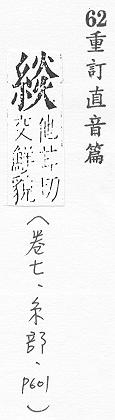 62重訂直音篇
緂
他甘切
衣鮮貌
(卷七、糸部、P601)